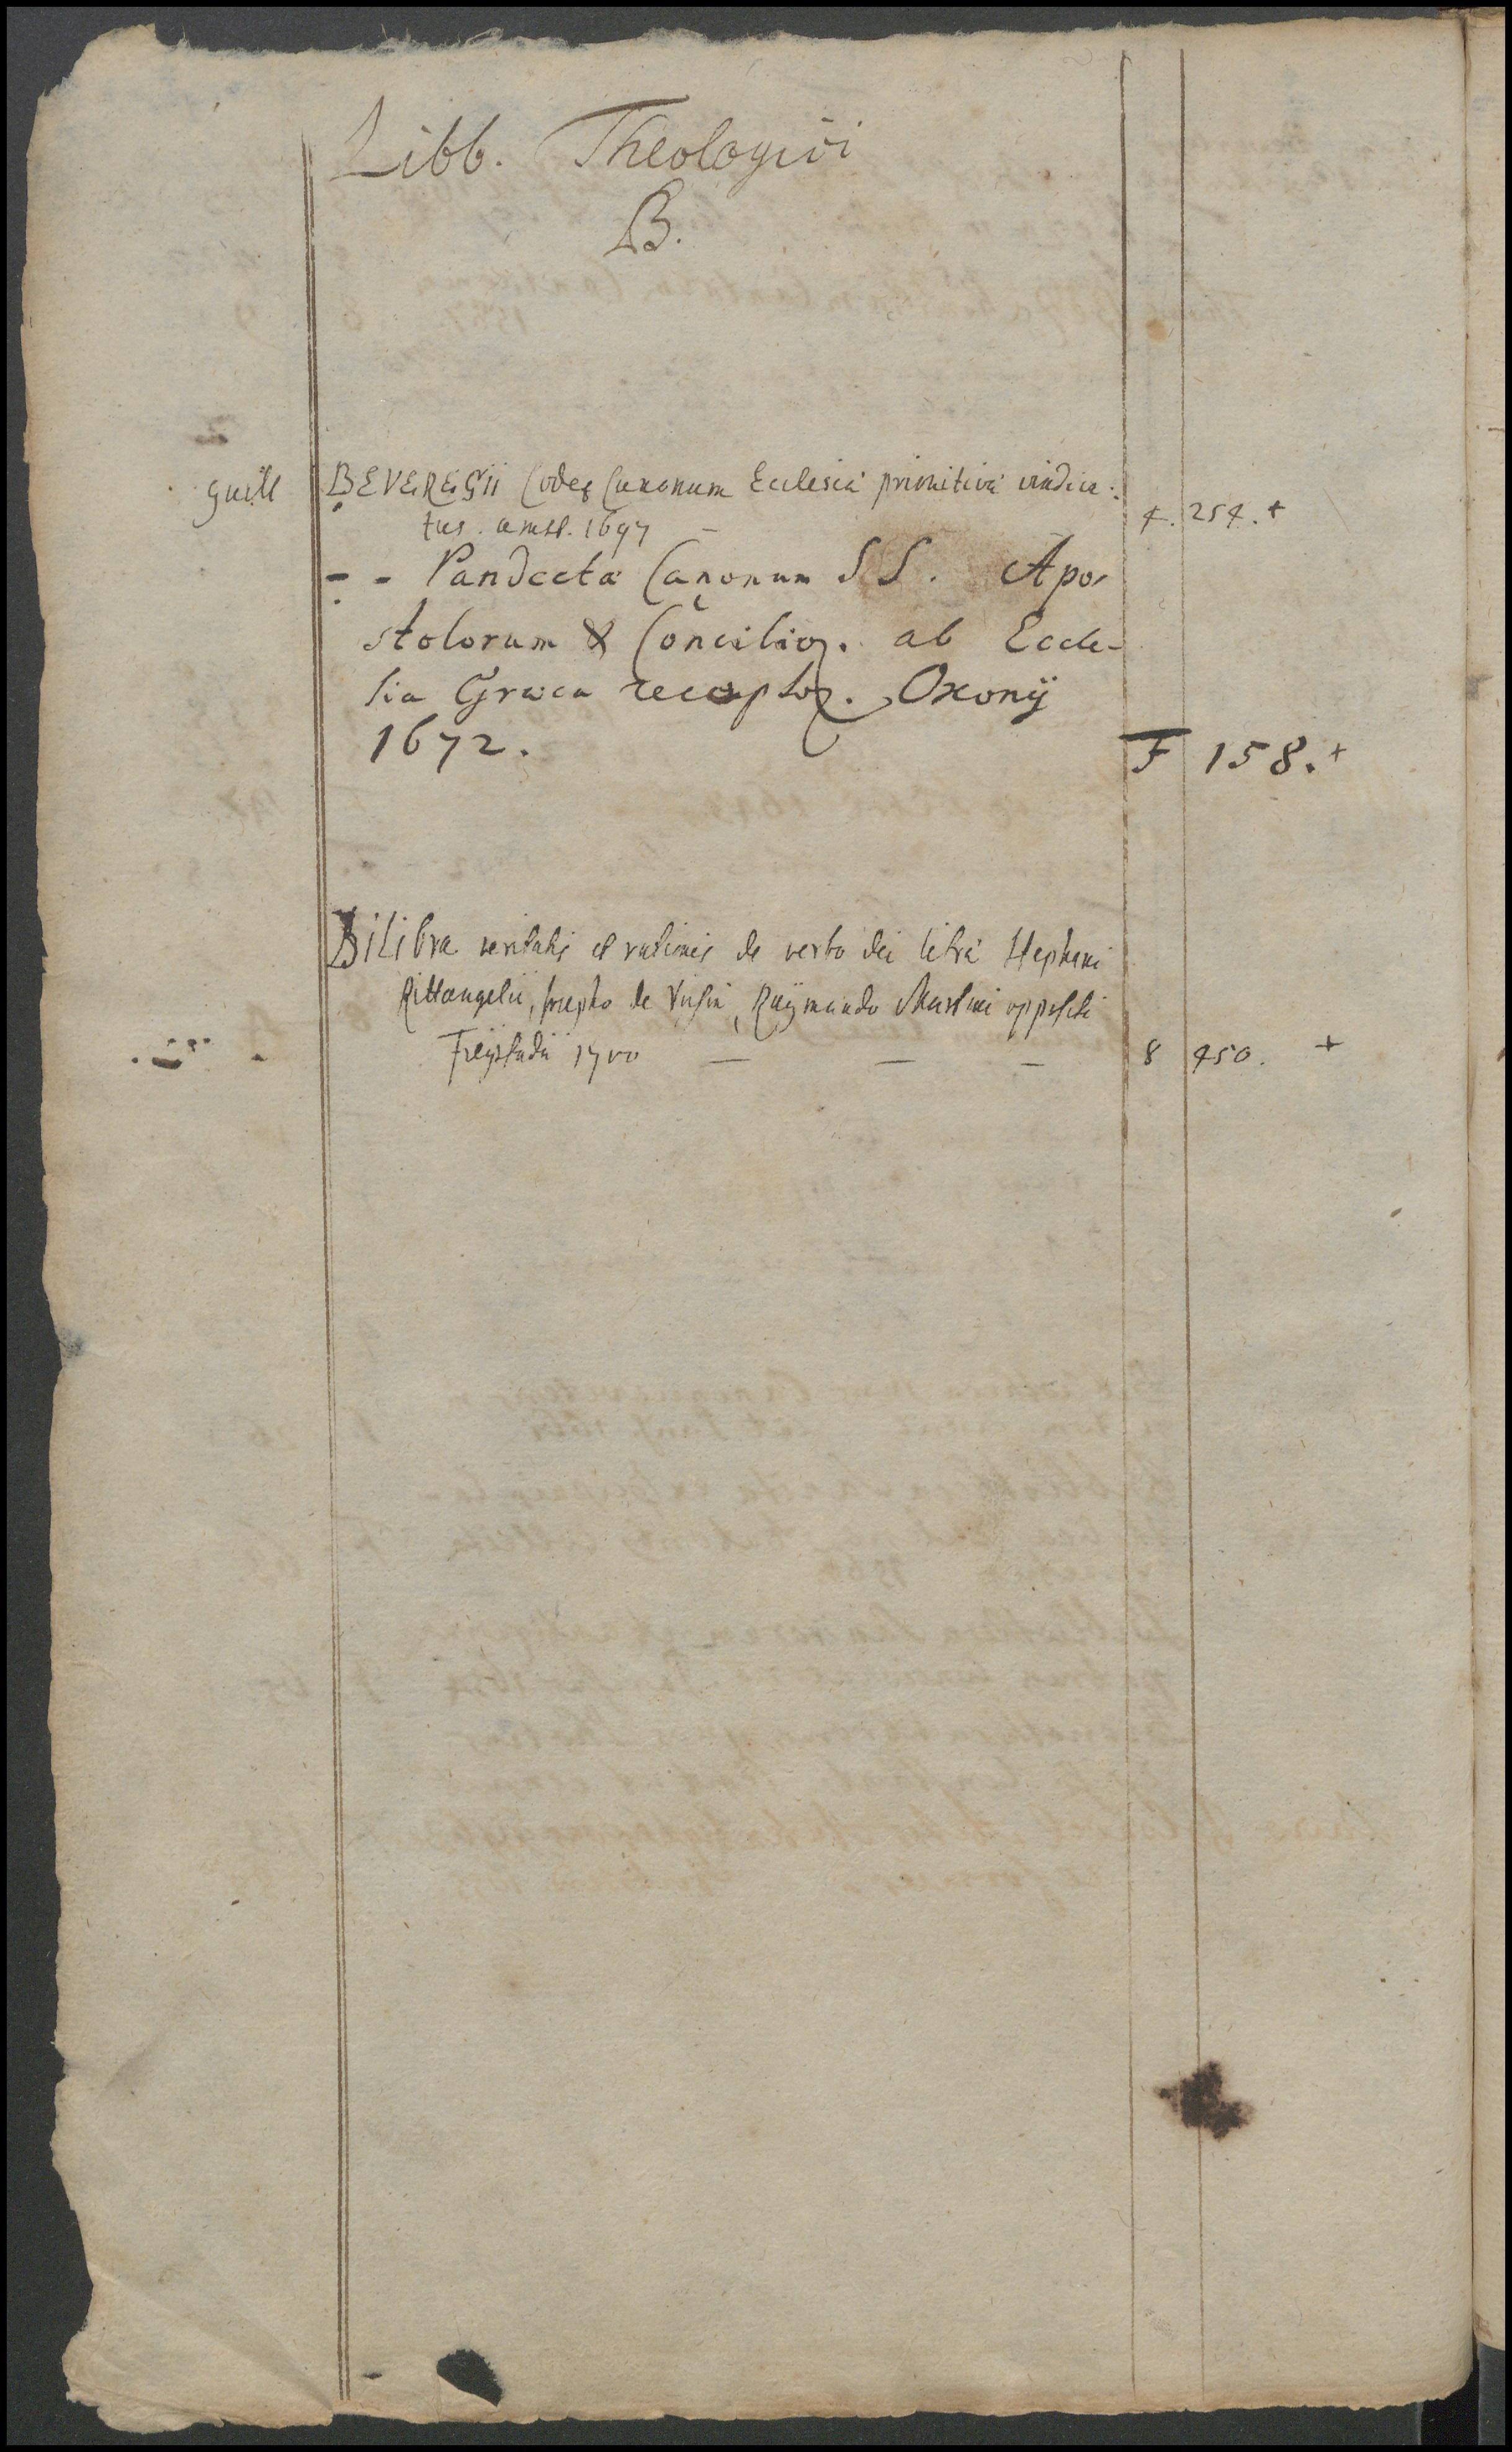 Libb. Theologici
B.
Guill BEVEREGii Codex Canonum Ecclesiæ primitivæ vindica:
tus. amst. 1697 — 4. 254. +
- - Pandectæ Canonum SS. Apo-
stolorum & Concilioꝝ. ab Eccle-
sia Græca receptoꝝ. Oxonij
1672. F 158. +
Bilibra veritatis et rationis de verbo dei libræ Stephani
Rittangelii, Josepho de Voisin, Raymundo Martini oppositi
Freystadii 1700 — — — 8 450. +